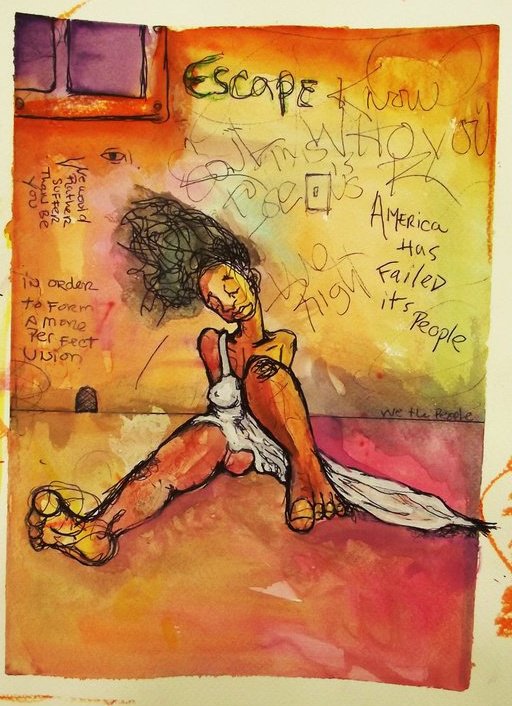 ESCAPE
Know
WHO YOU
R
We would
Rather
Suffer
Than Be
You
America
Has
Failed
its
People
in order
to Form
A More
Perfect
Union
We the People